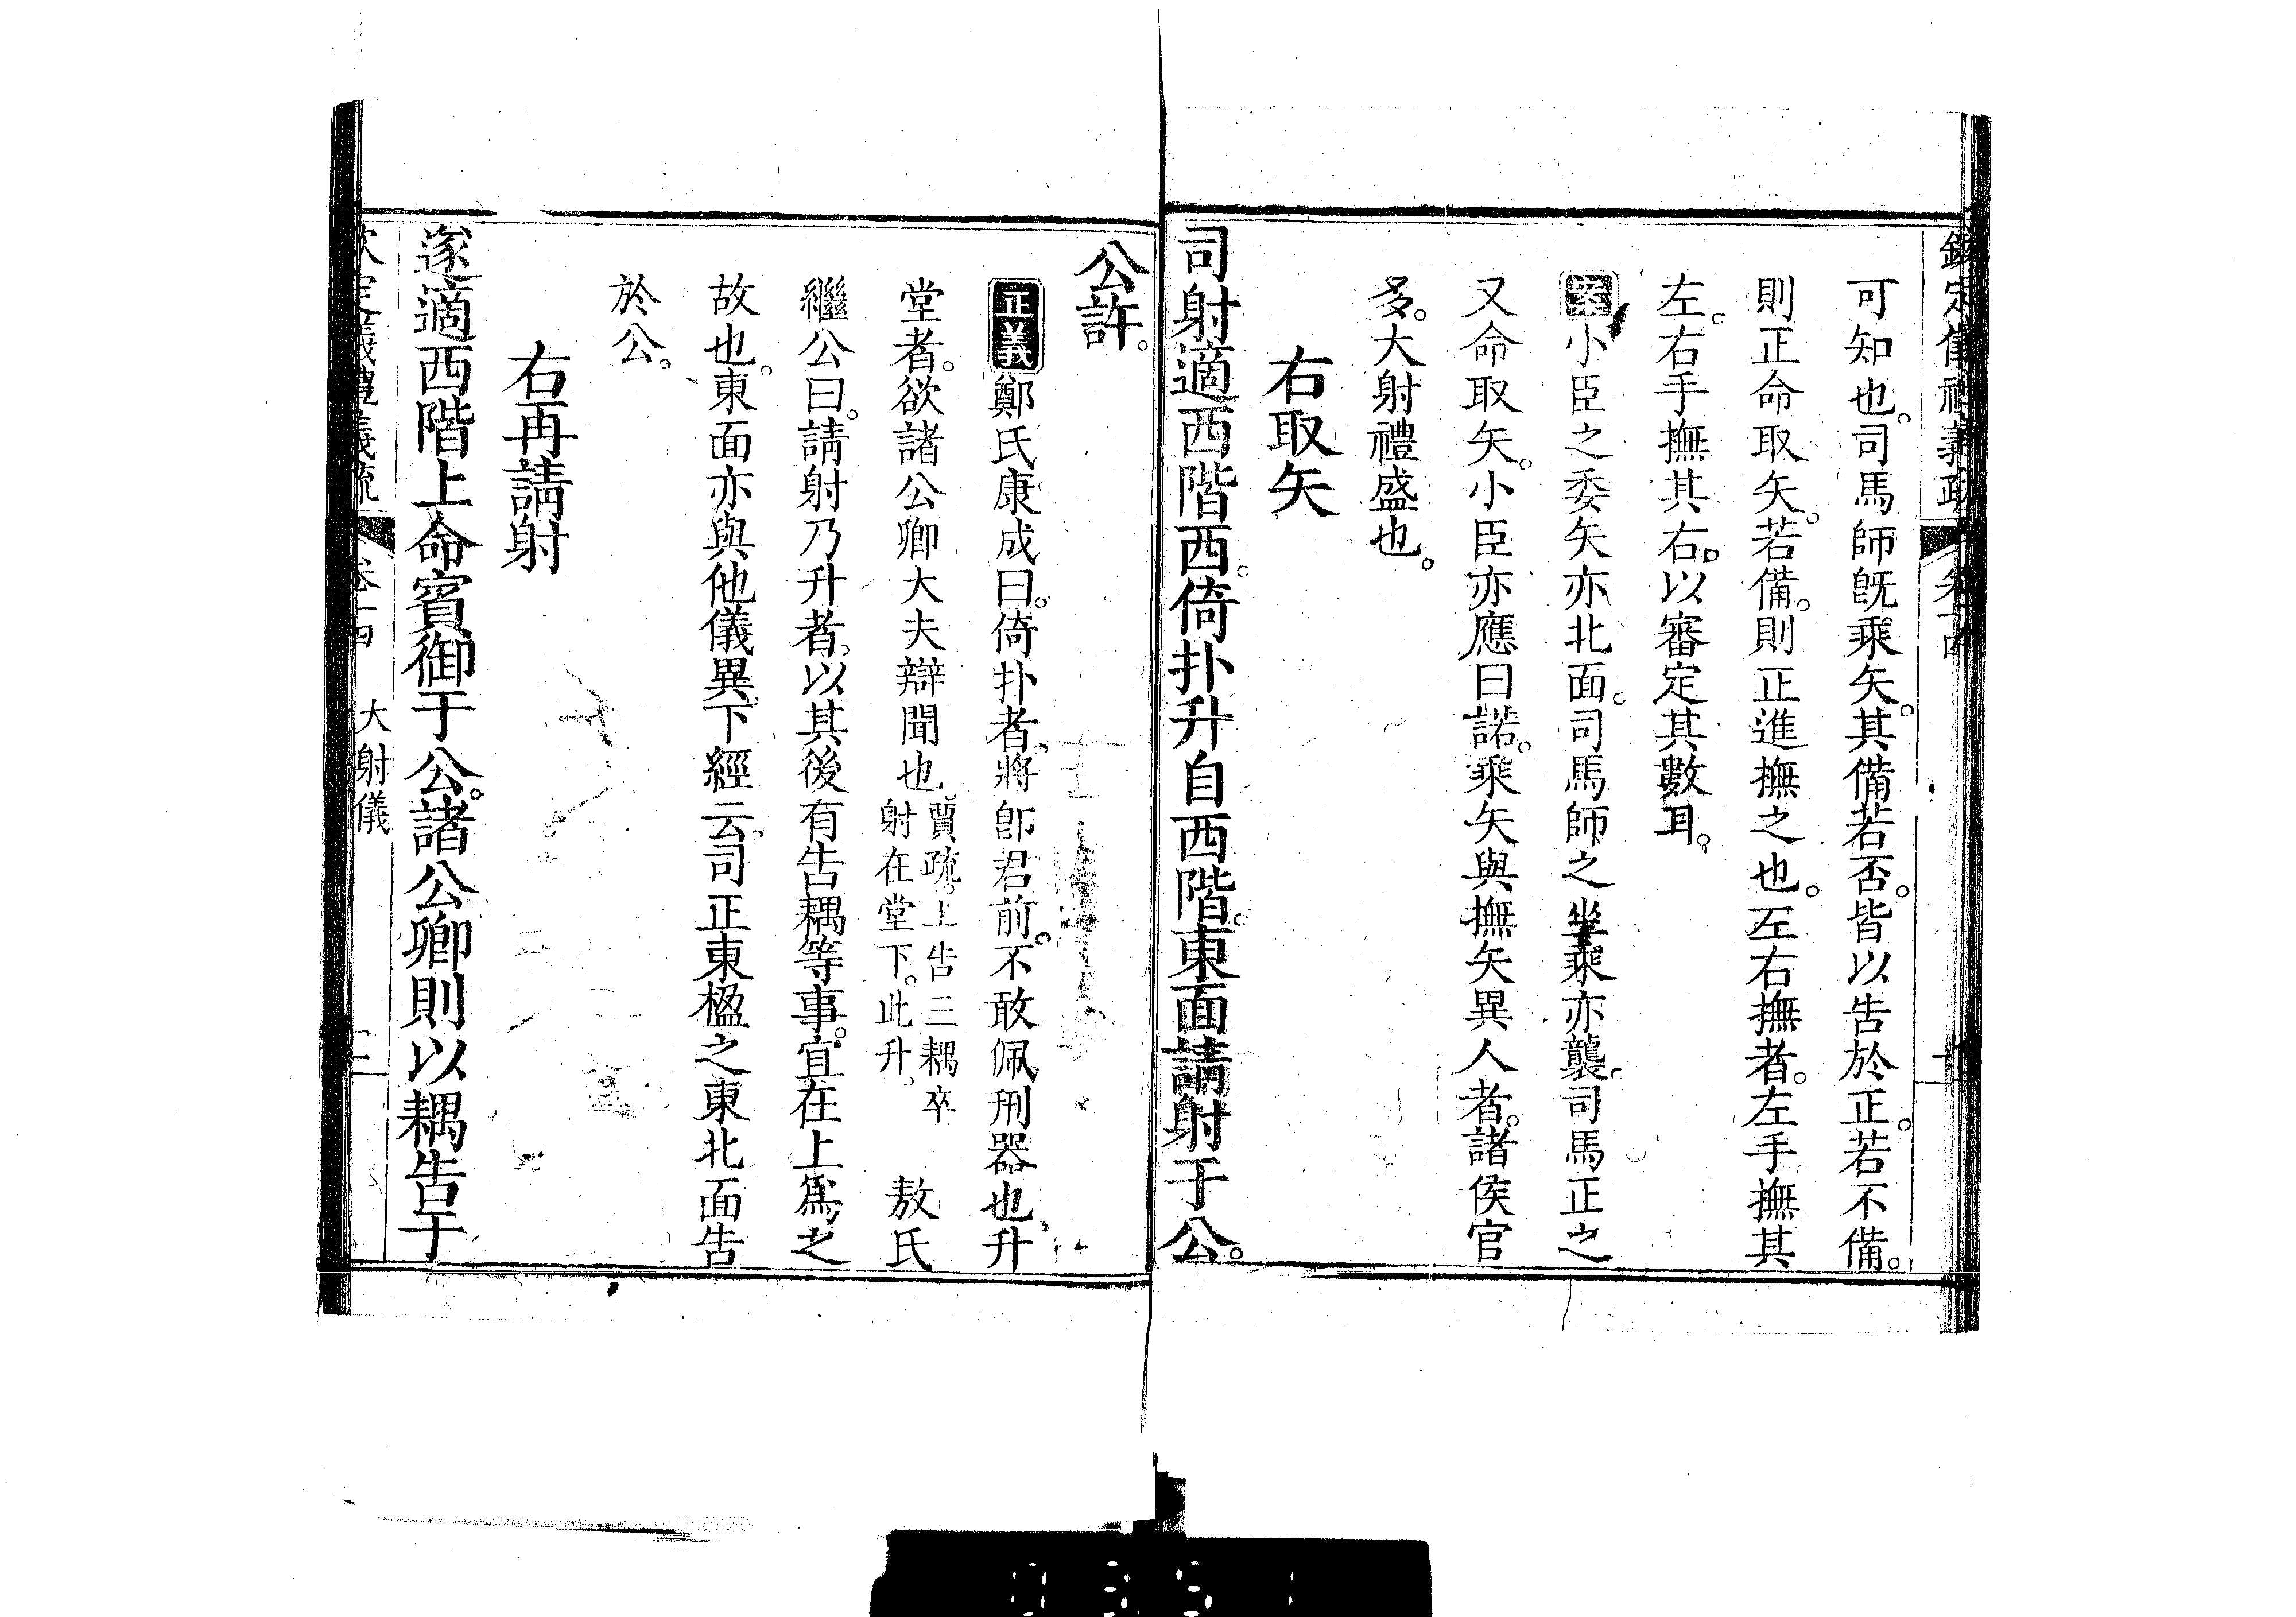 可知也。司馬師旣乘矢。其備若否。皆以吿於正。若不備。
則正命取矢。若備。則正進撫之也。左右撫者。左手撫其
左。右手撫其右。以審定其數耳。
小臣之委矢亦北面。司馬師之坐乘亦襲。司馬正之
又命取矢。小臣亦應曰諾。乘矢與撫矢異人者。諸侯官
多。大射禮盛也。
右取矢
司射適西階西。倚扑升自西階。東面請射于公。
公許。
正義鄭氏康成曰。倚扑者。將卽君前。不敢佩刑器也。升
堂者。欲諸公卿大夫辯聞也。賈疏。上吿三耦卒射在堂下。此升。敖氏
繼公曰。請射乃升者。以其後有吿耦等事。宜在上爲之
故也。東面亦與他儀異。下經云。司正東楹之東北面吿
於公。
右再請射
遂適西階上命賓御于公。諸公卿則以耦吿于
大射儀